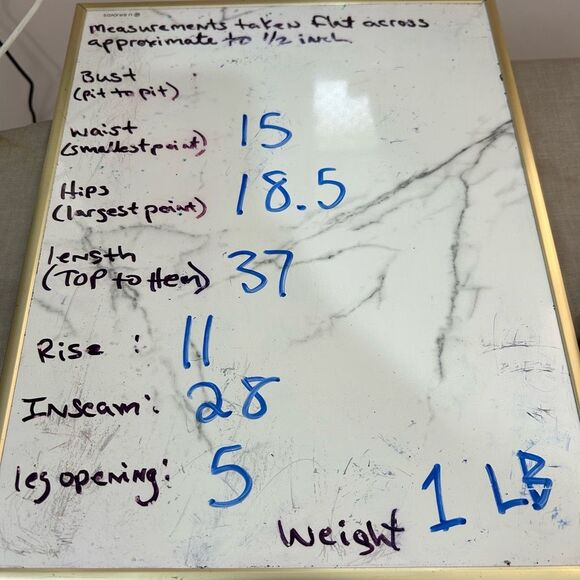 Measurements taken flat across
approximate to 1/2 inch
Bust :
(pit to pit)
Waist
(smallest point) 15
Hips
(largest point) 18.5
length
(TOP to Hem) 37
Rise : 11
Inseam: 28
leg opening: 5
Weight 1 LB